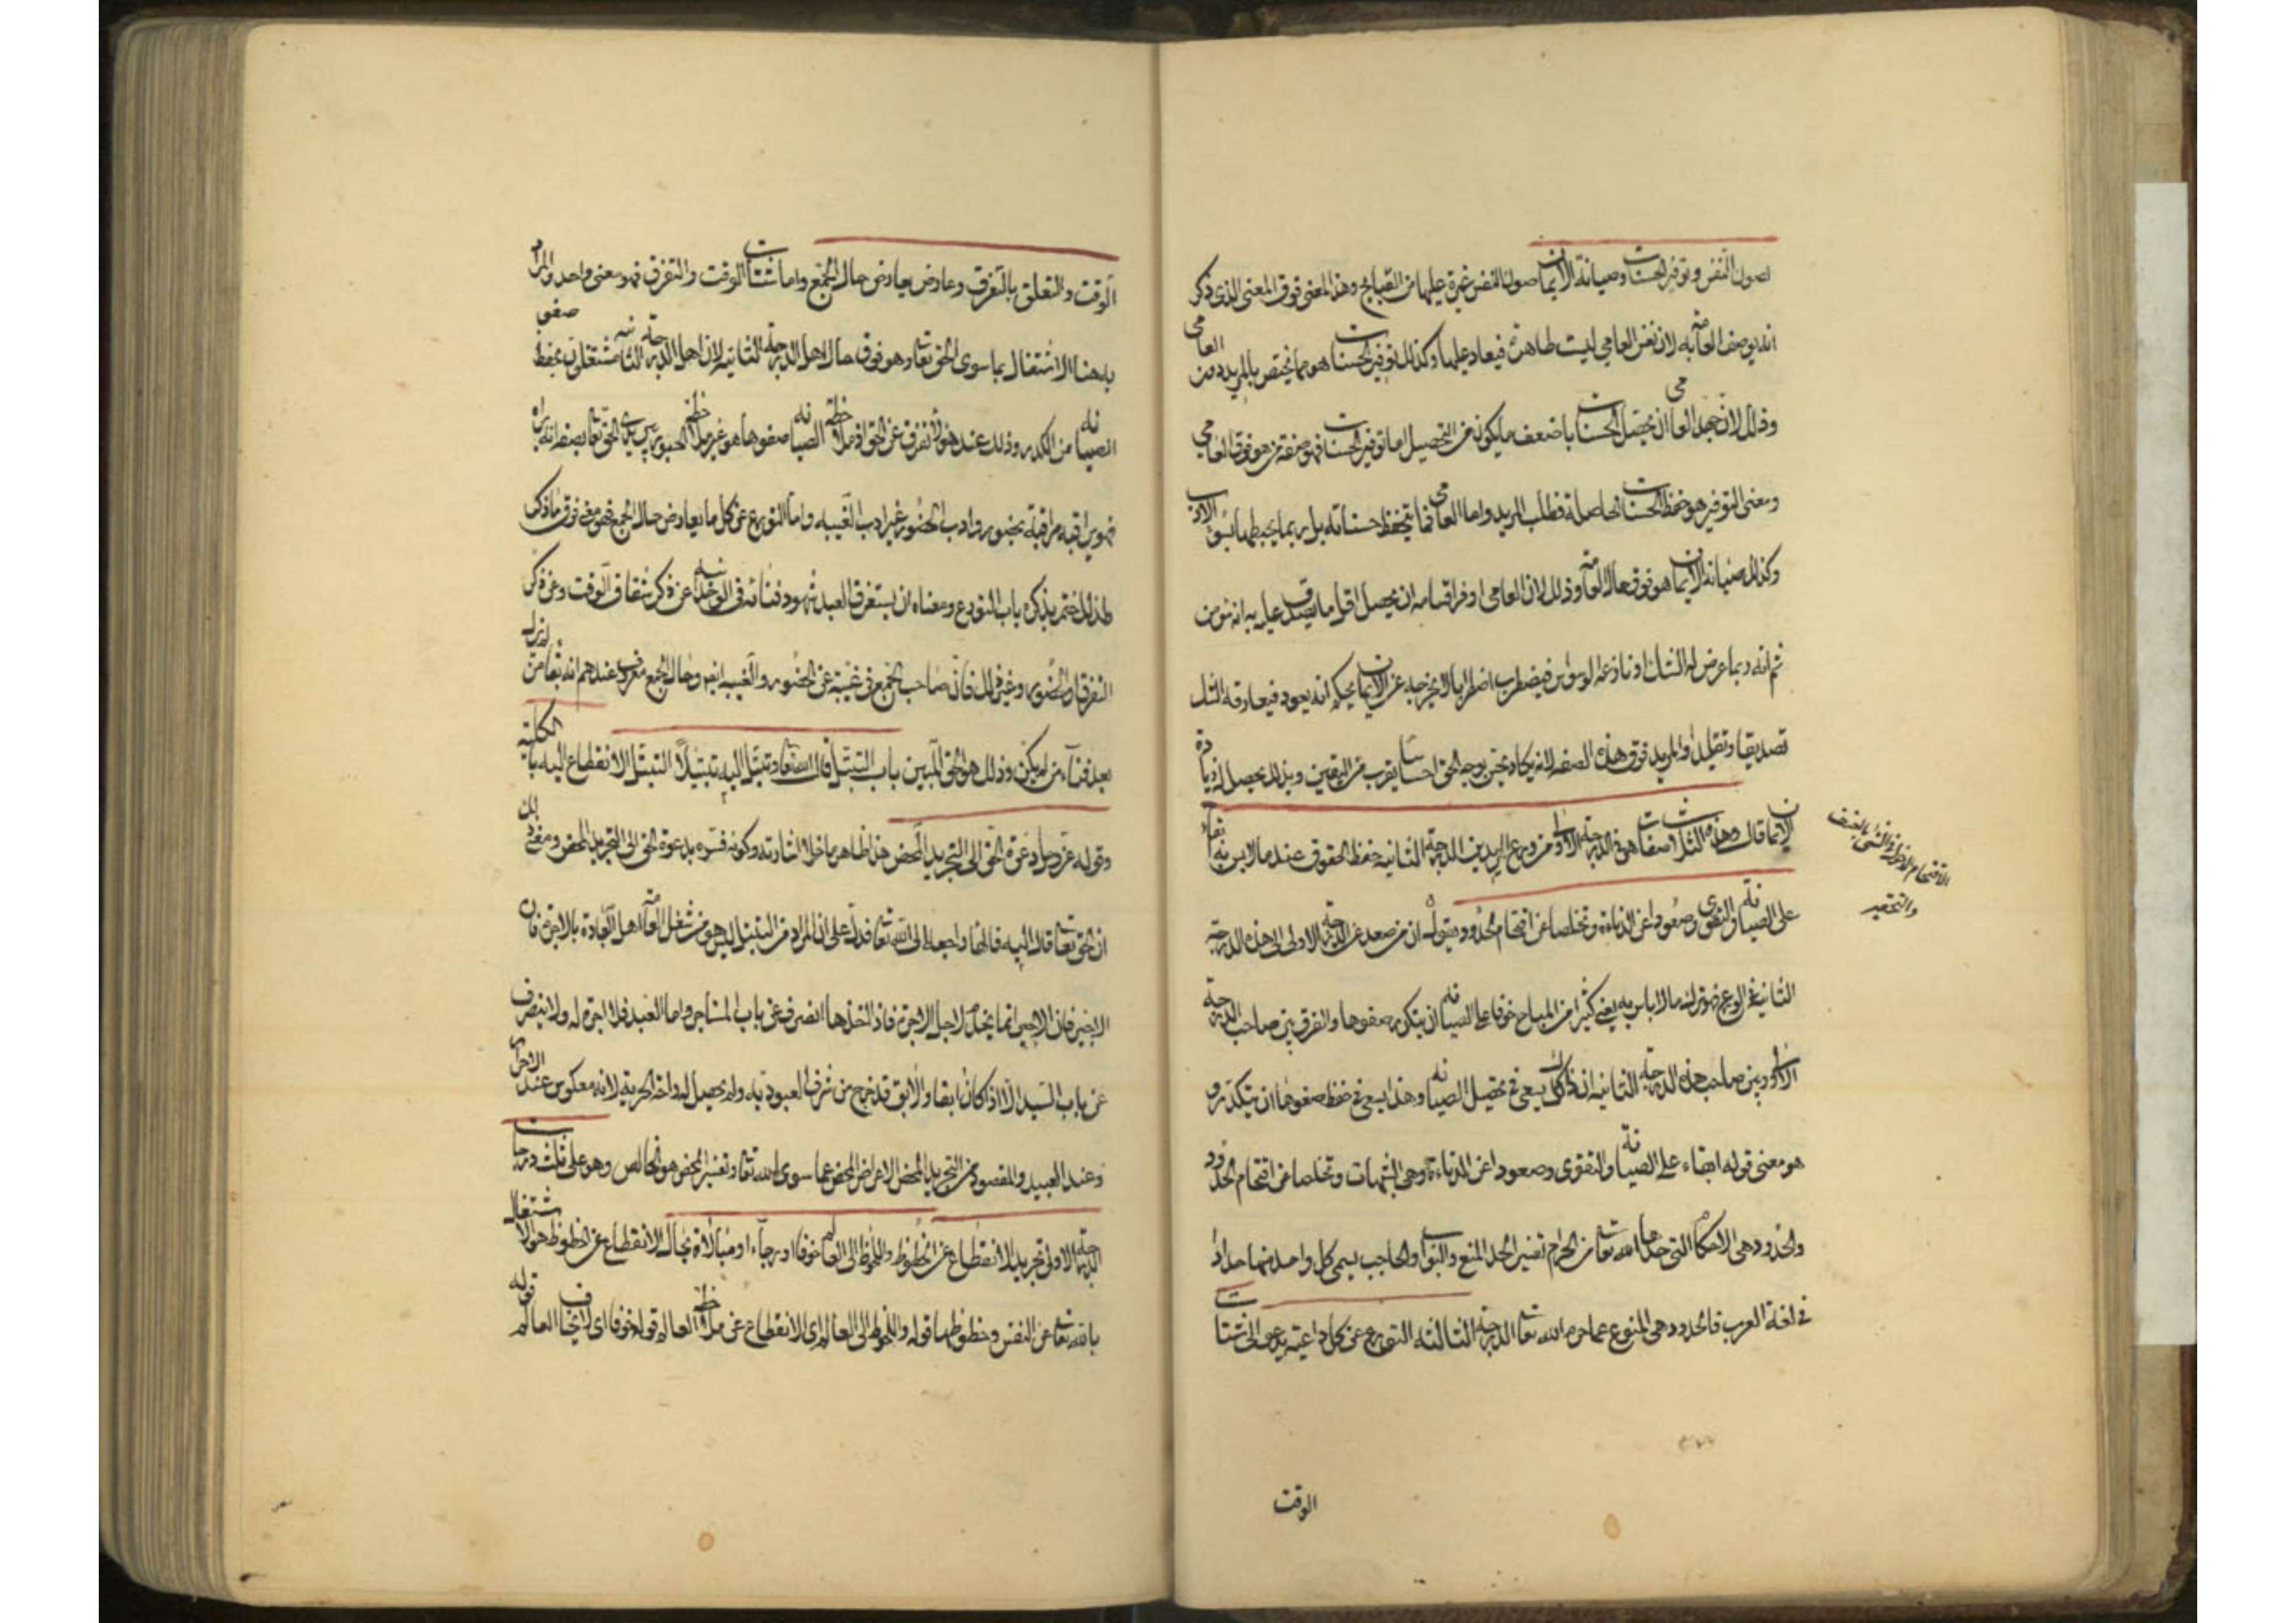 لصون النفس وتوفير الحسنات وصيانة الايمان صون النفس غيرة عليها من القبايح وهذا المعنى فوق المعنى الذي ذكر
انه يوصف العامة به لان نفس العامي ليست طاهرة فيعاد عليها وكذلك توفير الحسنات هو مما يختص بالمريد دون العامي
وذلك لان جهد العامي ان يحصل الحسنات باضعف ما يكون من التحصيل اما توفير الحسنات فهو صفة من هو فوق العامي
ومعنى التوفير هو حفظ الحسنات الحاصلة وطلب المزيد واما العامي فما يتحفظ حسناته بل ربما يحبطها بسوء الادب
وكذلك صيانة الايمان هو فوق حال العامة وذلك لان العامي اوفر اقسامه ان يحصل اقل ما يصدق عليه انه مؤمن
ثم انه ربما عرض له الشك او نازعه الوسواس فيضطرب اضطرابا لا يخرجه عن الايمان بحكم انه يعود فيعاد
تصديقا وتقليدا والمريد فوق هذه الصفة لانه يكاد يحس بوجه الحق احساسا يقرب من اليقين وبذلك يحصل له زيادة
الايمان قال وهذه الثلث صفات هي في الدرجة الاولى من ورع المريدين الدرجة الثانية حفظ الحدود عند ما لا باس به ابقاء
على الصيانة والتقوى وصعودا عن الدناءة وتخلصا عن اقتحام الحدود يقول ان من صعد عن الدرجة الاولى الى هذه الدرجة
الثانية من الورع فهو يترك ما لا باس به يعني كثيرا من المباح خوفا على الصيانة ان يتكدر صفوها والفرق بين صاحب الدرجة
الاولى وبين صاحب هذه الدرجة الثانية ان ذاك كان يسعى في تحصيل الصيانة وهذا يسعى في حفظ صفوها ان يتكدر و
هو معنى قوله ابقاء على الصيانة والتقوى وصعودا عن الدناءة وهي الشبهات وتخلصا من اقتحام الحدود
والحدود هي الاحكام التي حدها الله تعالى من الحرام تفسير الحد المنع والبواب والحاجب يسمى كل واحد منهما حدادا
في لغة العرب فالحدود هي المنوع عما حرم الله تعالى الدرجة الثالثة التورع عن كل داعية يدعو الى شتات
الاقتحام الدخول في الشئ بالعنف
والتقصير
الوقت
الوقت والتعلق بالتفرق وعارض يعارض حال الجمع واما شتات الوقت والتفرق فهو معنى واحد والمراد
به هنا الاشتغال بما سوى الحق تعالى وهو فوق حال اهل الدرجة الثانية لان اهل الدرجة الثانية مشتغلون بحفظ صفو
الصيانة من الكدر وذلك عند هؤلاء تفرق عن الحق اذ ملاحظة الصيانة وصفوها هو غير ملاحظة الحضور بين يدي الحق تعالى بصفة انه يراه
فهو يراقبه مراقبة بحضور وادب الحضور غير ادب الغيبة واما التورع عن كل ما يعارض حال الجمع فهو معنى فوق ما ذكر
ولذلك ختم بذكره باب التورع ومعناه ان يستغرق العبد شهود فنائه في الوحدانية عن ذكر شقاق الوقت وعن ذكر
التفرقة والحضور وغير ذلك فان صاحب الجمع في غيبة عن الحضور والغيبة ايضا وحال الجمع معروف عندهم انه بقاء من لم يزل
بعد فناء من لم يكن وذلك هو الحق المبين باب التبتل قال الله تعالى وتبتل اليه تبتيلا التبتل الانقطاع اليه بالكلية
وقوله عز وجل له دعوة الحق الى التجريد المحض هذا ظاهر ما خلا اشارته وكونه فسره بدعوة الحق الى التجريد المحض ومعنى ذلك
ان الحق تعالى قال اليه فالهاء راجعة الى الله تعالى فدل على ان المراد من التبتل ليس هو من شغل العامة اهل العبادة بالاجرة فان
الاجير فان الاجير انما يخدم لاجل الاجرة فاذا اخذها انصرف عن باب المستاجر واما العبد فلا اجرة له ولا ينصرف
عن باب السيد الا اذا كان ابقا والابق قد خرج من شرف العبودية ولم يحصل له راحة الحرية لانه معكوس عند الاحرار
وعند العبيد والمقصود من التجريد المحض الاعراض المحض عما سوى الله تعالى وتفسير المحض هو الخالص وهو على ثلث درجات
الدرجة الاولى تجريد الانقطاع عن الحظوظ واللحوظ الى العالم خوفا او رجاء او مبالاة بحال الانقطاع عن الحظوظ هو الاشتغال
بالله تعالى عن النفس وحظوظها قوله واللحوظ الى العالم اي الانقطاع عن ملاحظة العالم قوله خوفا اي لا يخاف العالم قوله